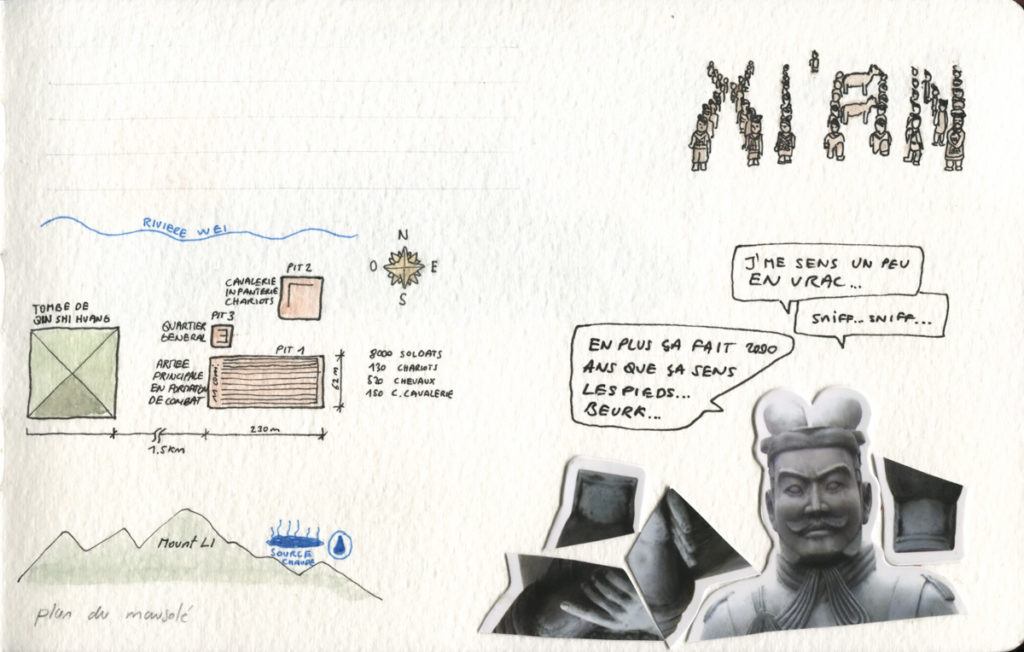 XI'AN
RIVIERE WEI
N
O
E
S
PIT 2
CAVALERIE
INFANTERIE
CHARIOTS
TOMBE DE
QIN SHI HUANG
PIT 3
QUARTIER
GENERAL
PIT 1
ARMEE
PRINCIPALE
EN FORMATION
DE COMBAT
62 m
8000 SOLDATS
130 CHARIOTS
520 CHEVAUX
150 C. CAVALERIE
230 m
1.5 KM
MOUNT LI
SOURCE
CHAUDE
plan du mausolé
J'ME SENS UN PEU
EN VRAC...
SNIFF... SNIFF...
EN PLUS ÇA FAIT 2000
ANS QUE ÇA SENS
LES PIEDS...
BEURK...